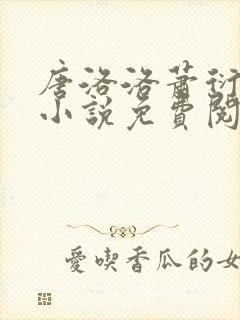 唐洛洛蕭衍
小說免費閱
愛喫香瓜的女